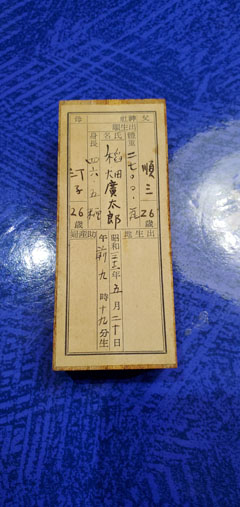 父 順三 26歳
體重 二七〇〇.瓦
氏名 稲畑廣太郎
身長 四六.五糎
母 汀子 26歳
出生地
昭和三十二年五月二十日
午前九時十九分生